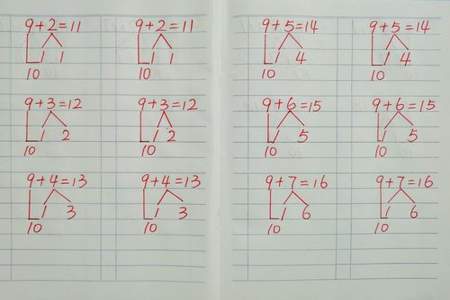 9+2=11 9+2=11 9+5=14 9+5=14
1 1 1 1 1 4 1 4
10 10 10 10
9+3=12 9+3=12 9+6=15 9+6=15
1 2 1 2 1 5 1 5
10 10 10 10
9+4=13 9+4=13 9+7=16 9+7=16
1 3 1 3 1 6 1 6
10 10 10 10